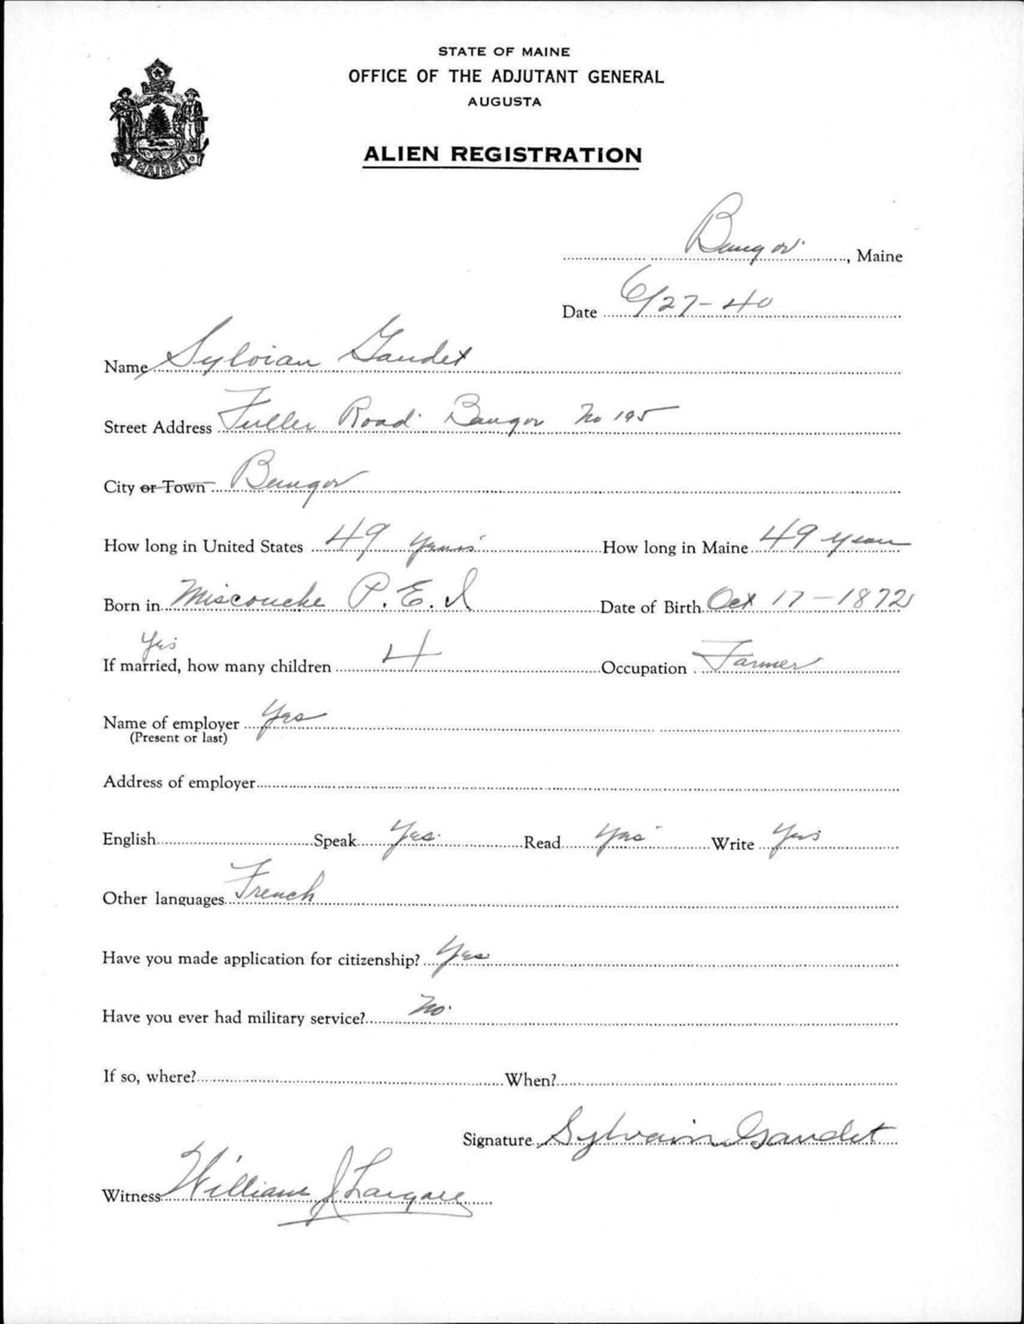 STATE OF MAINE
OFFICE OF THE ADJUTANT GENERAL
AUGUSTA
ALIEN REGISTRATION
MAINE
Bangor, Maine
Date 6/27-40
Name Sylvian Gaudet
Street Address Fuller Road Bangor No 195
City or Town Bangor
How long in United States 49 years How long in Maine 49 years
Born in Miscouche P.E.I Date of Birth Oct 17-1872
Yes
If married, how many children 4 Occupation Farmer
Name of employer Yes
(Present or last)
Address of employer
English Speak Yes Read Yes Write Yes
Other languages French
Have you made application for citizenship? Yes
Have you ever had military service? No
If so, where? When?
Signature Sylvain Gaudet
Witness William J